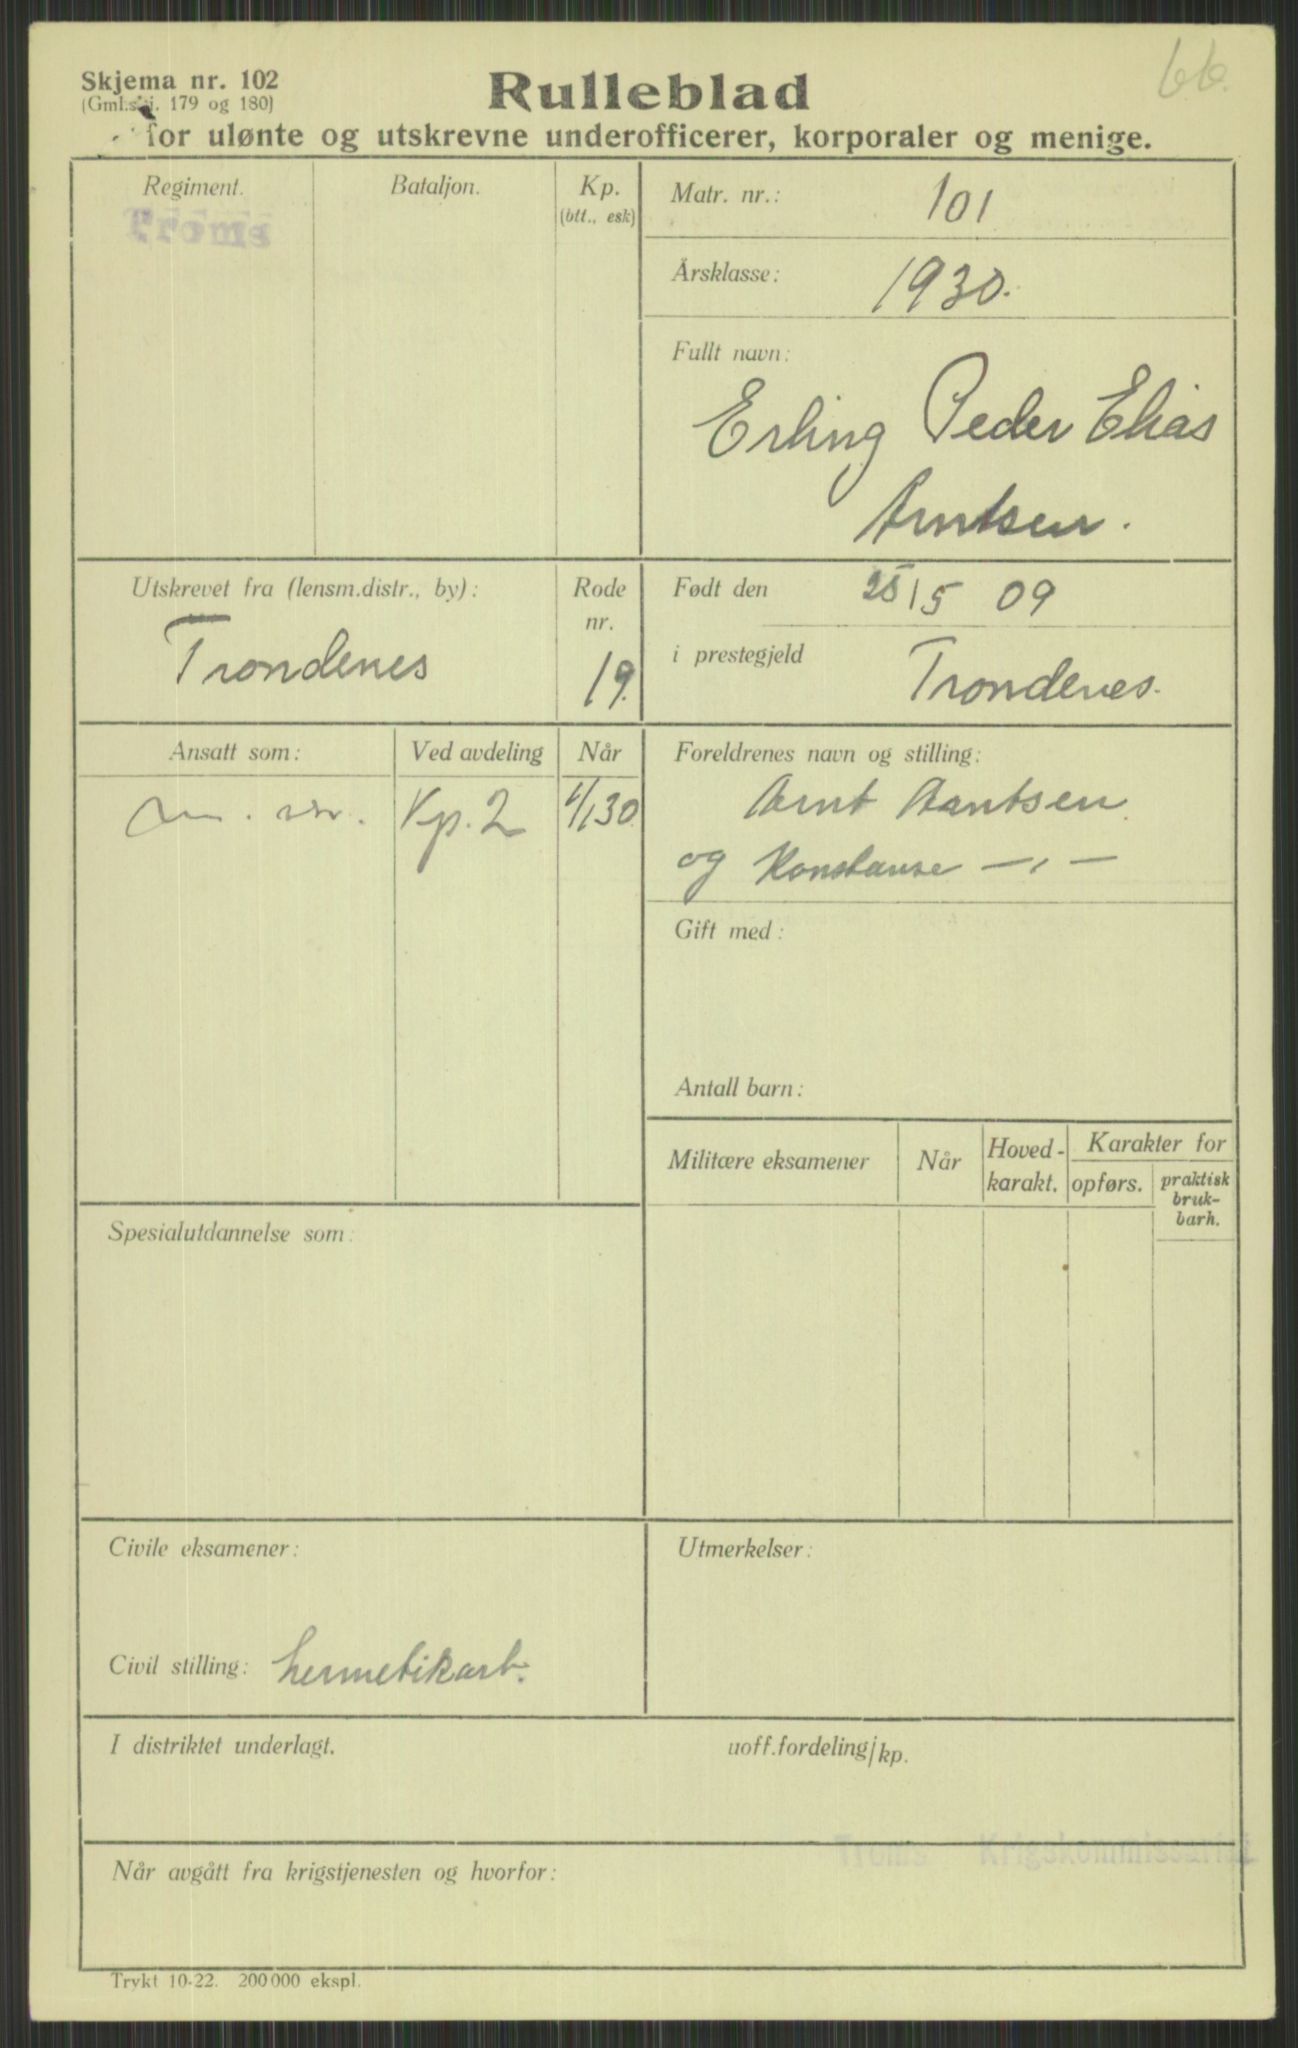 66.
Skjema nr. 102
(Gml.skj. 179 og 180)
Rulleblad
for ulønte og utskrevne underofficerer, korporaler og menige.
Regiment.
Troms
Bataljon.
Kp.
(btt., esk)
Matr. nr.: 101
Årsklasse: 1930.
Fullt navn:
Erling Peder Elias
Arntsen.
Utskrevet fra (lensm.distr., by):
Trondenes
Rode
nr.
19.
Født den 25/5 09
i prestegjeld Trondenes.
Ansatt som:
Ved avdeling
Når
Kp. 2
1/1 30
Foreldrenes navn og stilling:
Arnt Arntsen
og Konstanse —〃—
Gift med:
Antall barn:
Militære eksamener
Når
Hoved-
karakt.
Karakter for
opførs.
praktisk
bruk-
barh.
Spesialutdannelse som:
Civile eksamener:
Civil stilling: hermetikarb.
Utmerkelser:
I distriktet underlagt.
uoff.fordeling/kp.
Troms Krigskommissariat
Når avgått fra krigstjenesten og hvorfor:
Trykt 10-22. 200 000 ekspl.